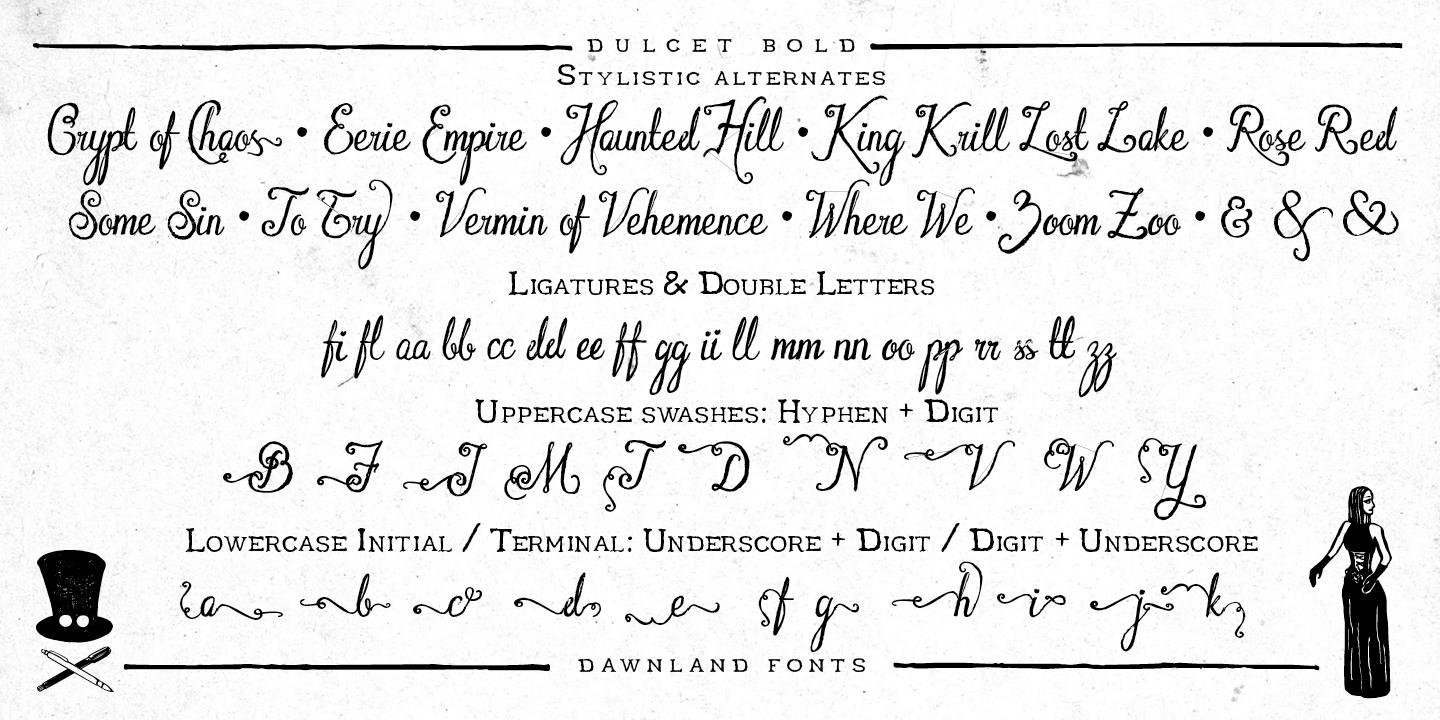 DULCET BOLD
STYLISTIC ALTERNATES
Crypt of Chaos • Eerie Empire • Haunted Hill • King Krill Lost Lake • Rose Red
Some Sin • To Try • Vermin of Vehemence • Where We • Zoom Zoo • & & &
LIGATURES & DOUBLE LETTERS
fi fl aa bb cc dd ee ff gg ii ll mm nn oo pp rr ss tt zz
UPPERCASE SWASHES: HYPHEN + DIGIT
B F J M T D N V W Y
LOWERCASE INITIAL / TERMINAL: UNDERSCORE + DIGIT / DIGIT + UNDERSCORE
a b c d e f g h i j k
DAWNLAND FONTS